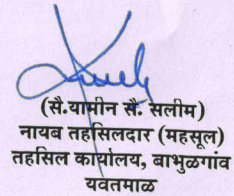 (सै.यामीन सै. सलीम)
नायब तहसिलदार (महसूल)
तहसिल कार्यालय, बाभुळगांव
यवतमाळ